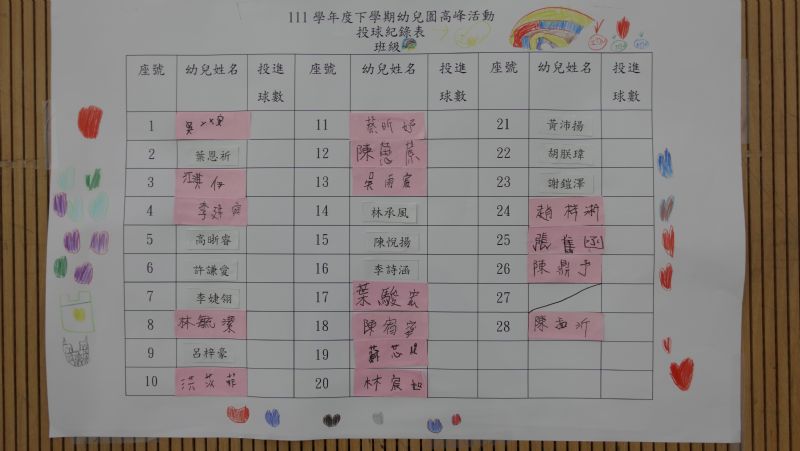 111 學年度下學期幼兒園高峰活動
投球紀錄表
班級
座號 幼兒姓名 投進球數 座號 幼兒姓名 投進球數 座號 幼兒姓名 投進球數
1 11 蔡昕妤 21 黃沛揚
2 葉恩祈 12 陳 22 胡朕瑋
3 13 吳雨宸 23 謝鎧澤
4 李 14 林承風 24 趙梓
5 高晰睿 15 陳悅揚 25 張
6 許謙愛 16 李詩涵 26 陳鼎予
7 李婕翎 17 葉駿宏 27
8 林毓潔 18 陳宥 28 陳 沂
9 呂梓豪 19 蘇芯
10 洪 菲 20 林宸